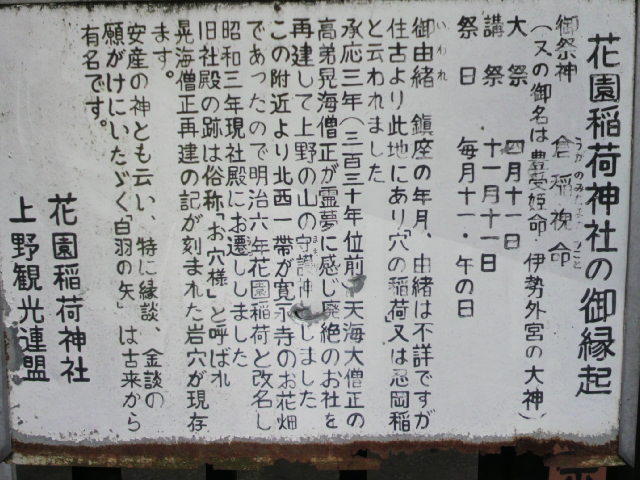 花園稲荷神社の御縁起
御祭神 倉稲魂命
(又の御名は豊受姫命・伊勢外宮の大神)
大祭 四月十一日
講祭 十一月十一日
祭日 毎月十一・午の日
御由緒 鎮座の年月、由緒は不詳ですが
往古より此地にあり「穴の稲荷」又は忍岡稲
と云われました
承応三年(三百三十年位前)天海大僧正の
高弟晃海僧正が霊夢に感じ廃絶のお社を
再建して上野の山の守護神としました
この附近より北西一帯が寛永寺のお花畑
であったので明治六年花園稲荷と改名し
昭和三年現社殿にお遷ししました
旧社殿の跡は俗称「お穴様」と呼ばれ
晃海僧正再建の記が刻まれた岩穴が現存
ます。
安産の神とも云い、特に縁談、金談の
願がけにいたゞく「白羽の矢」は古来から
有名です。
花園稲荷神社
上野観光連盟